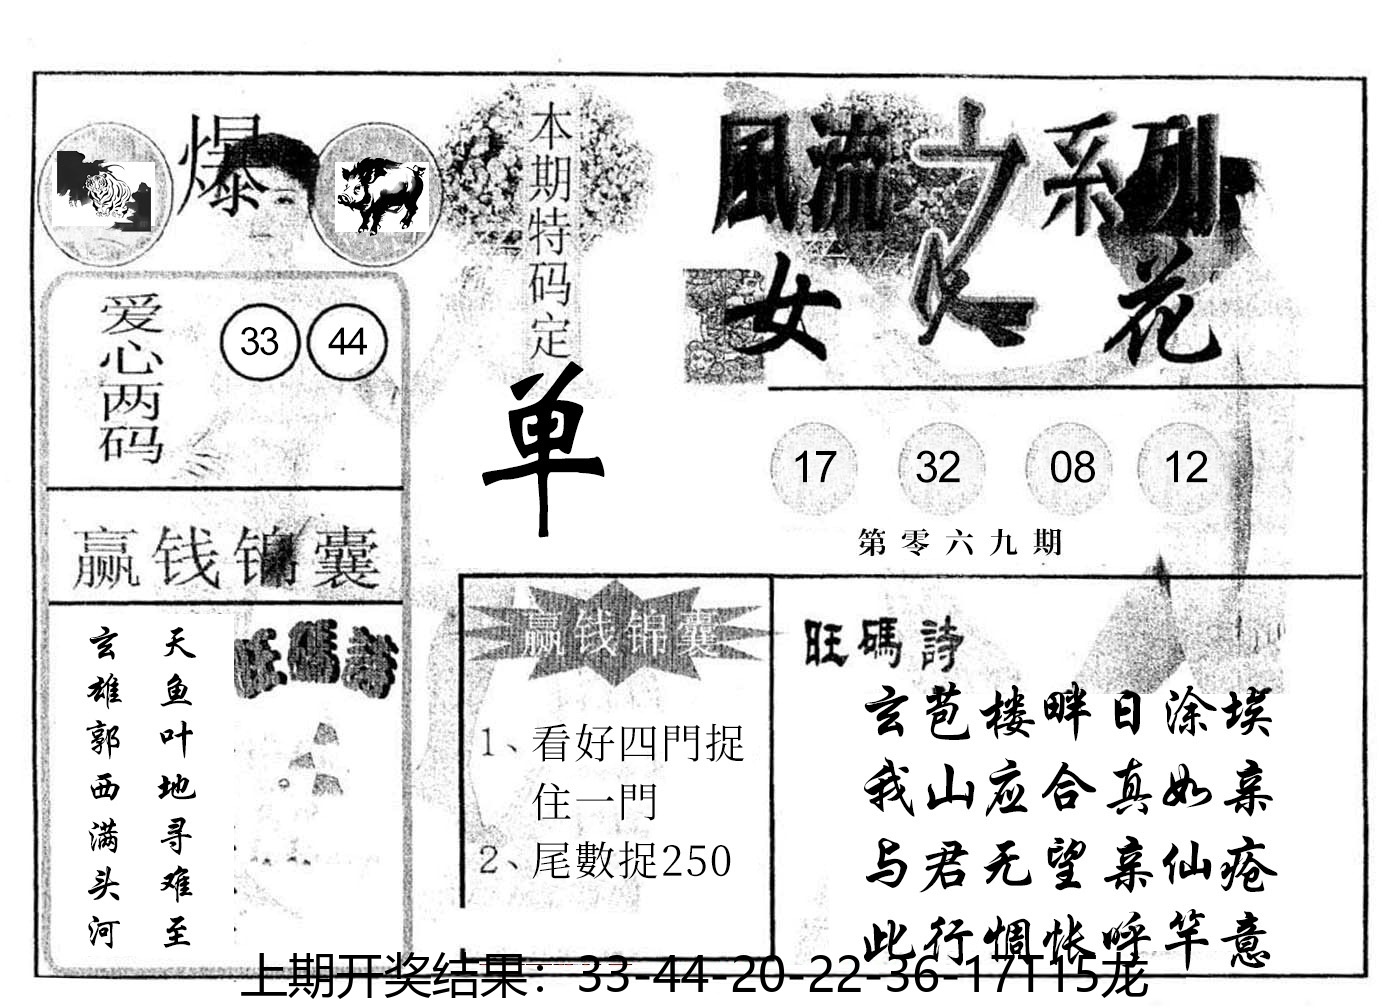 爆
本期特码定
单
風流之系列
女人花
爱心两码
33 44
17 32 08 12
第零六九期
赢钱锦囊
天鱼叶地寻难至
玄雄郭西满头河
旺碼詩
赢钱锦囊
1、看好四門捉
住一門
2、尾數捉250
旺碼詩
玄苞楼畔日涂埃
我山应合真如亲
与君无望亲仙疮
此行惆怅呼竿意
上期开奖结果：33-44-20-22-36-17T15龙